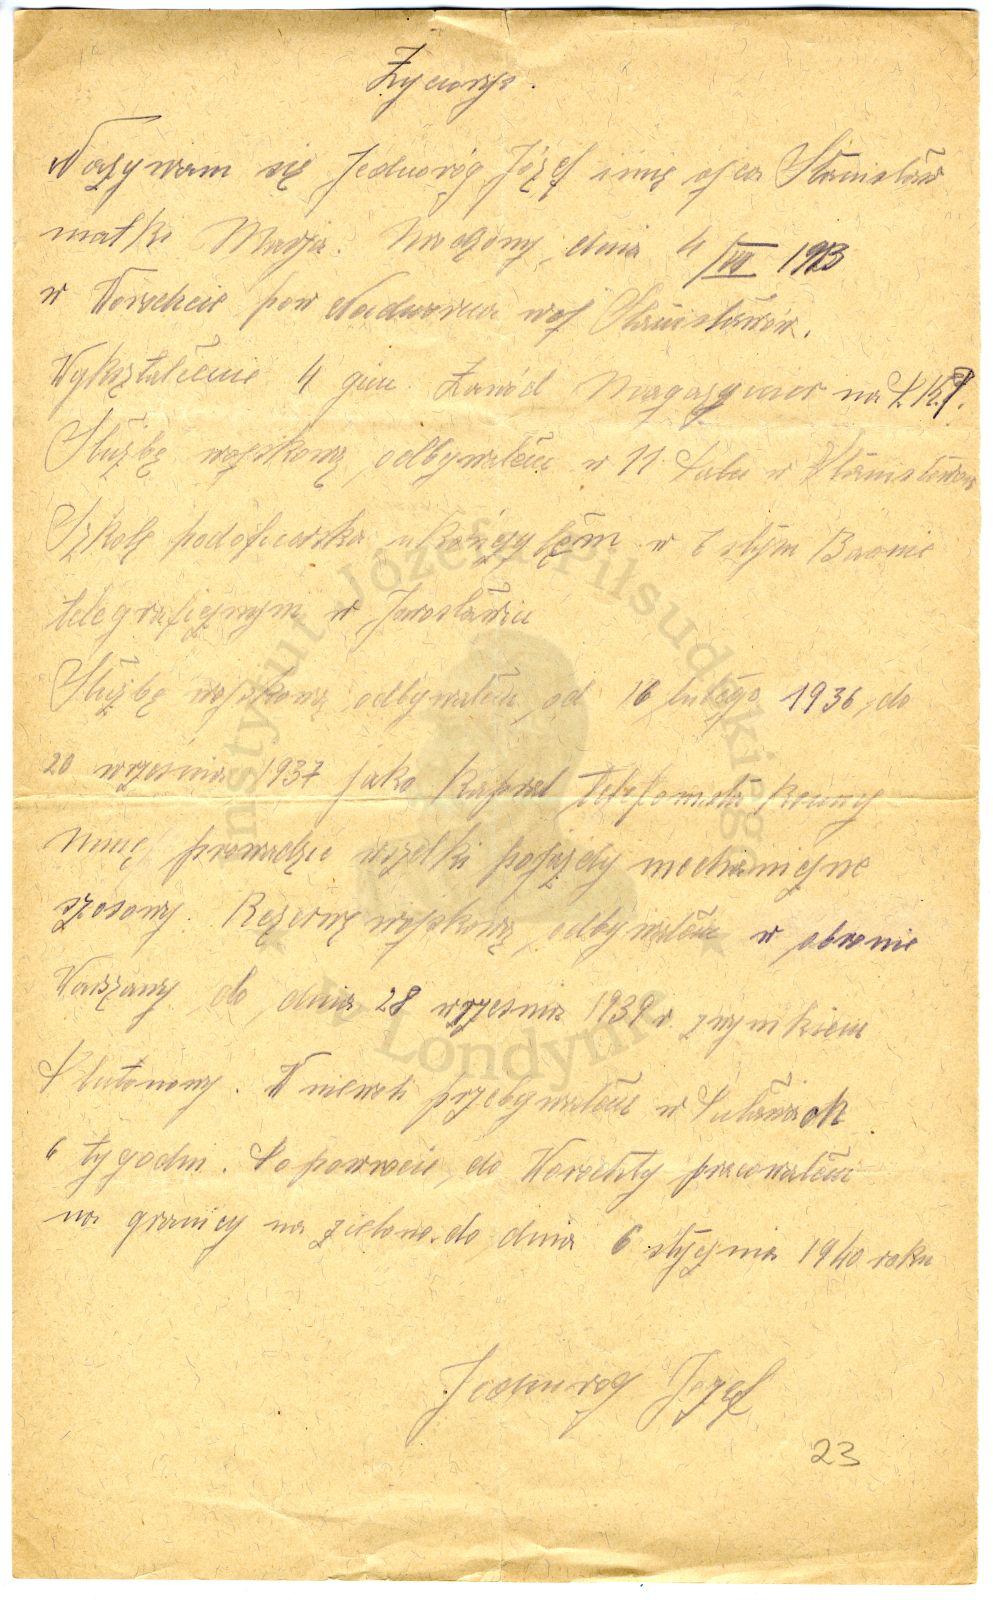 Życiorys.
Nazywam się Jednoróg Józef imię ojca Stanisław
matki Marja. Urodzony dnia 4/VII 1913
w Worochcie pow Nadworna woj Stanisławów.
Wykształcenie 4 gim. Zawód Magazynier na
Służbę wojskową odbywałem w 11 Palu w Stanisławow
Szkołę podoficerska ukończyłem w 6 stym Baonie
telegraficznym w Jarosławiu
Służbę wojskową odbywałem od 16 lutego 1936 do
20 września 1937 jako Kapral telefonista konny
Umię prowadzić wszelki pojazdy mechaniczne
szosowy. Rezerwę wojskową odbywałem w obronie
Warszawy do dnia 28 września 1939 r. z wynikiem
Plutonowy. W niewoli przebywałem w Puławach
6 tygodni. Po powrocie do Worochty pracowałem
na granicy na zielono do dnia 6 stycznia 1940 roku
Jednoróg Józef
23
Instytut Józefa Piłsudskiego
w Londynie